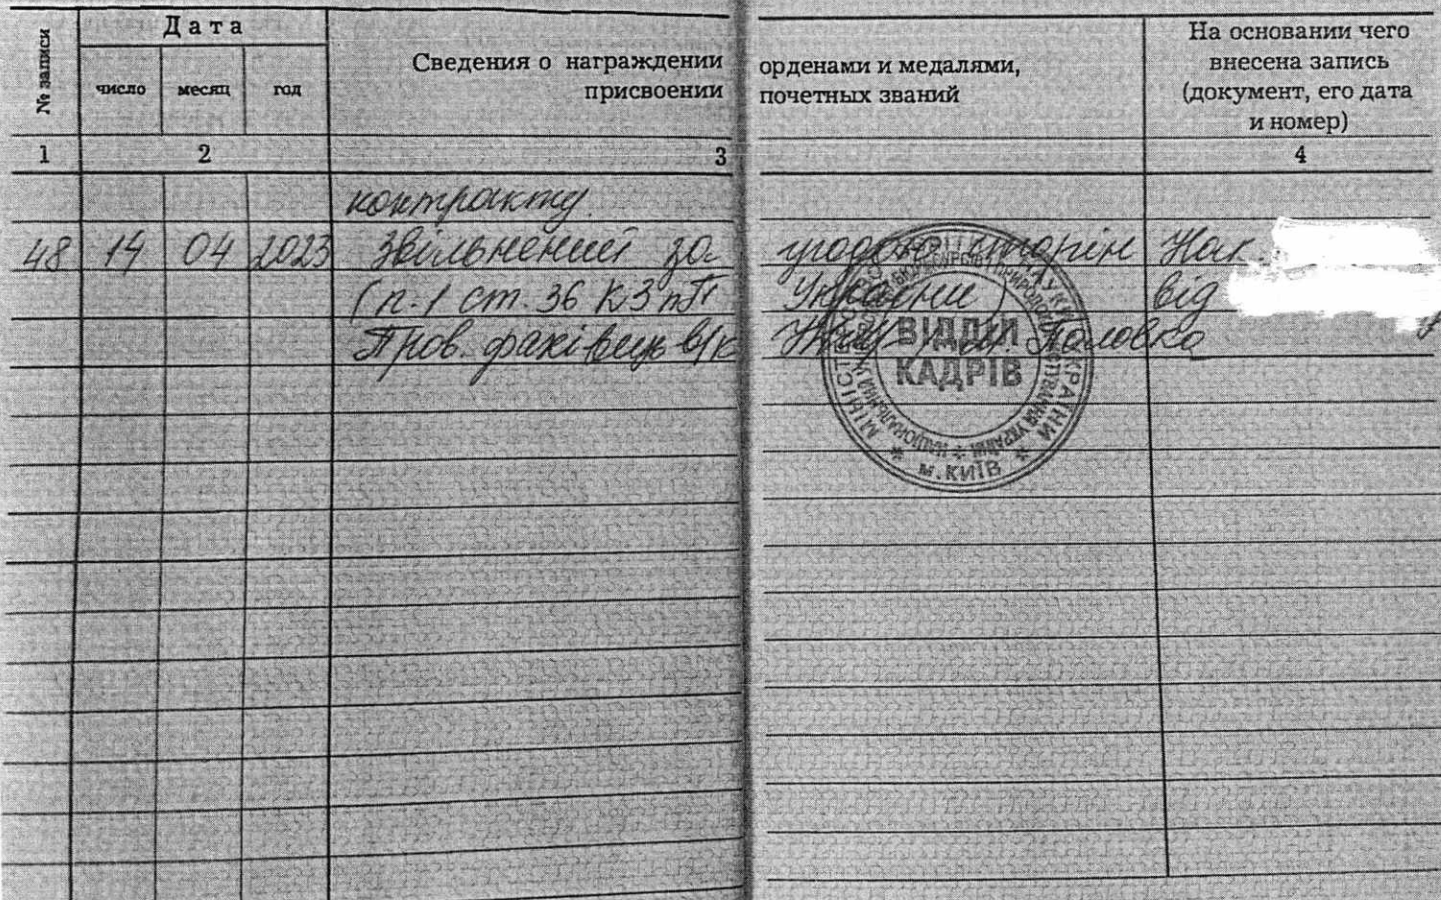 № записи
Дата
число месяц год
Сведения о награждении
присвоении
орденами и медалями,
почетных званий
На основании чего
внесена запись
(документ, его дата
и номер)
1 2 3 4
контракту.
48 14 04 2023 Звільнений за угодою сторін Нак.
(п.1 ст. 36 КЗпП України) від
Пров. фахівець в/к
ВІДДІЛ
КАДРІВ
* м. КИЇВ *